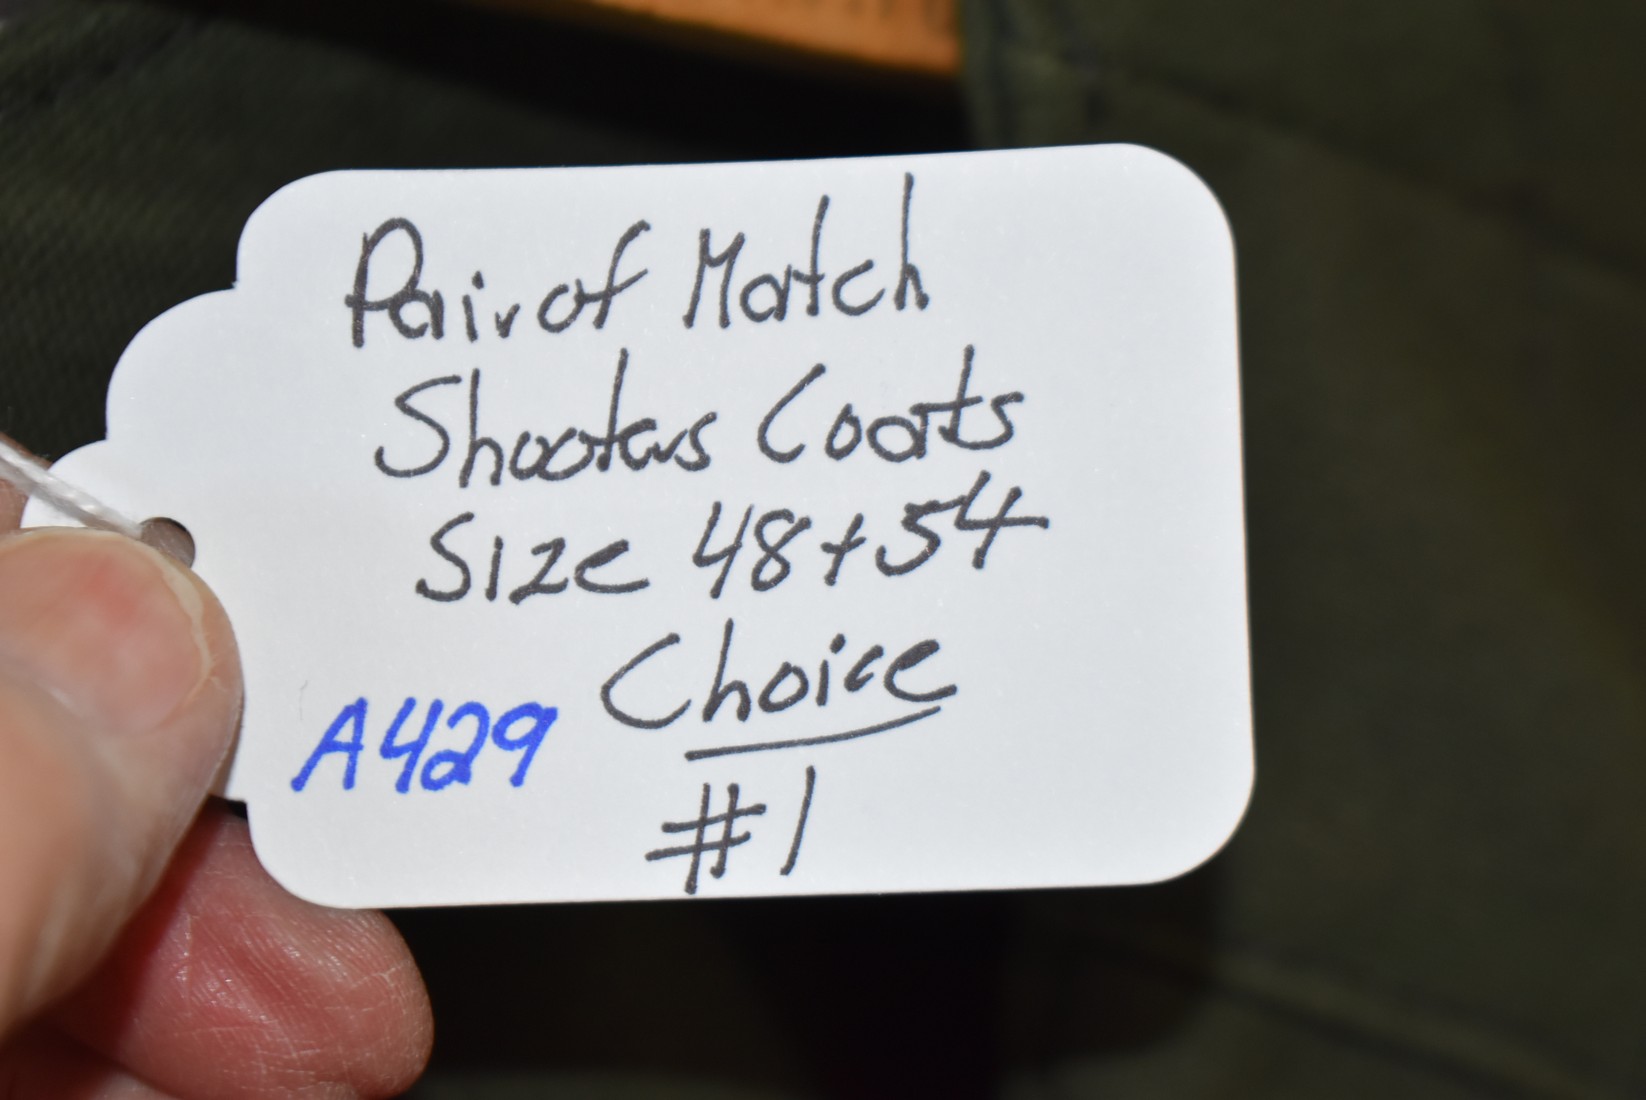 Pair of Match
Shooters Coats
Size 48+54
Choice
A429
#1